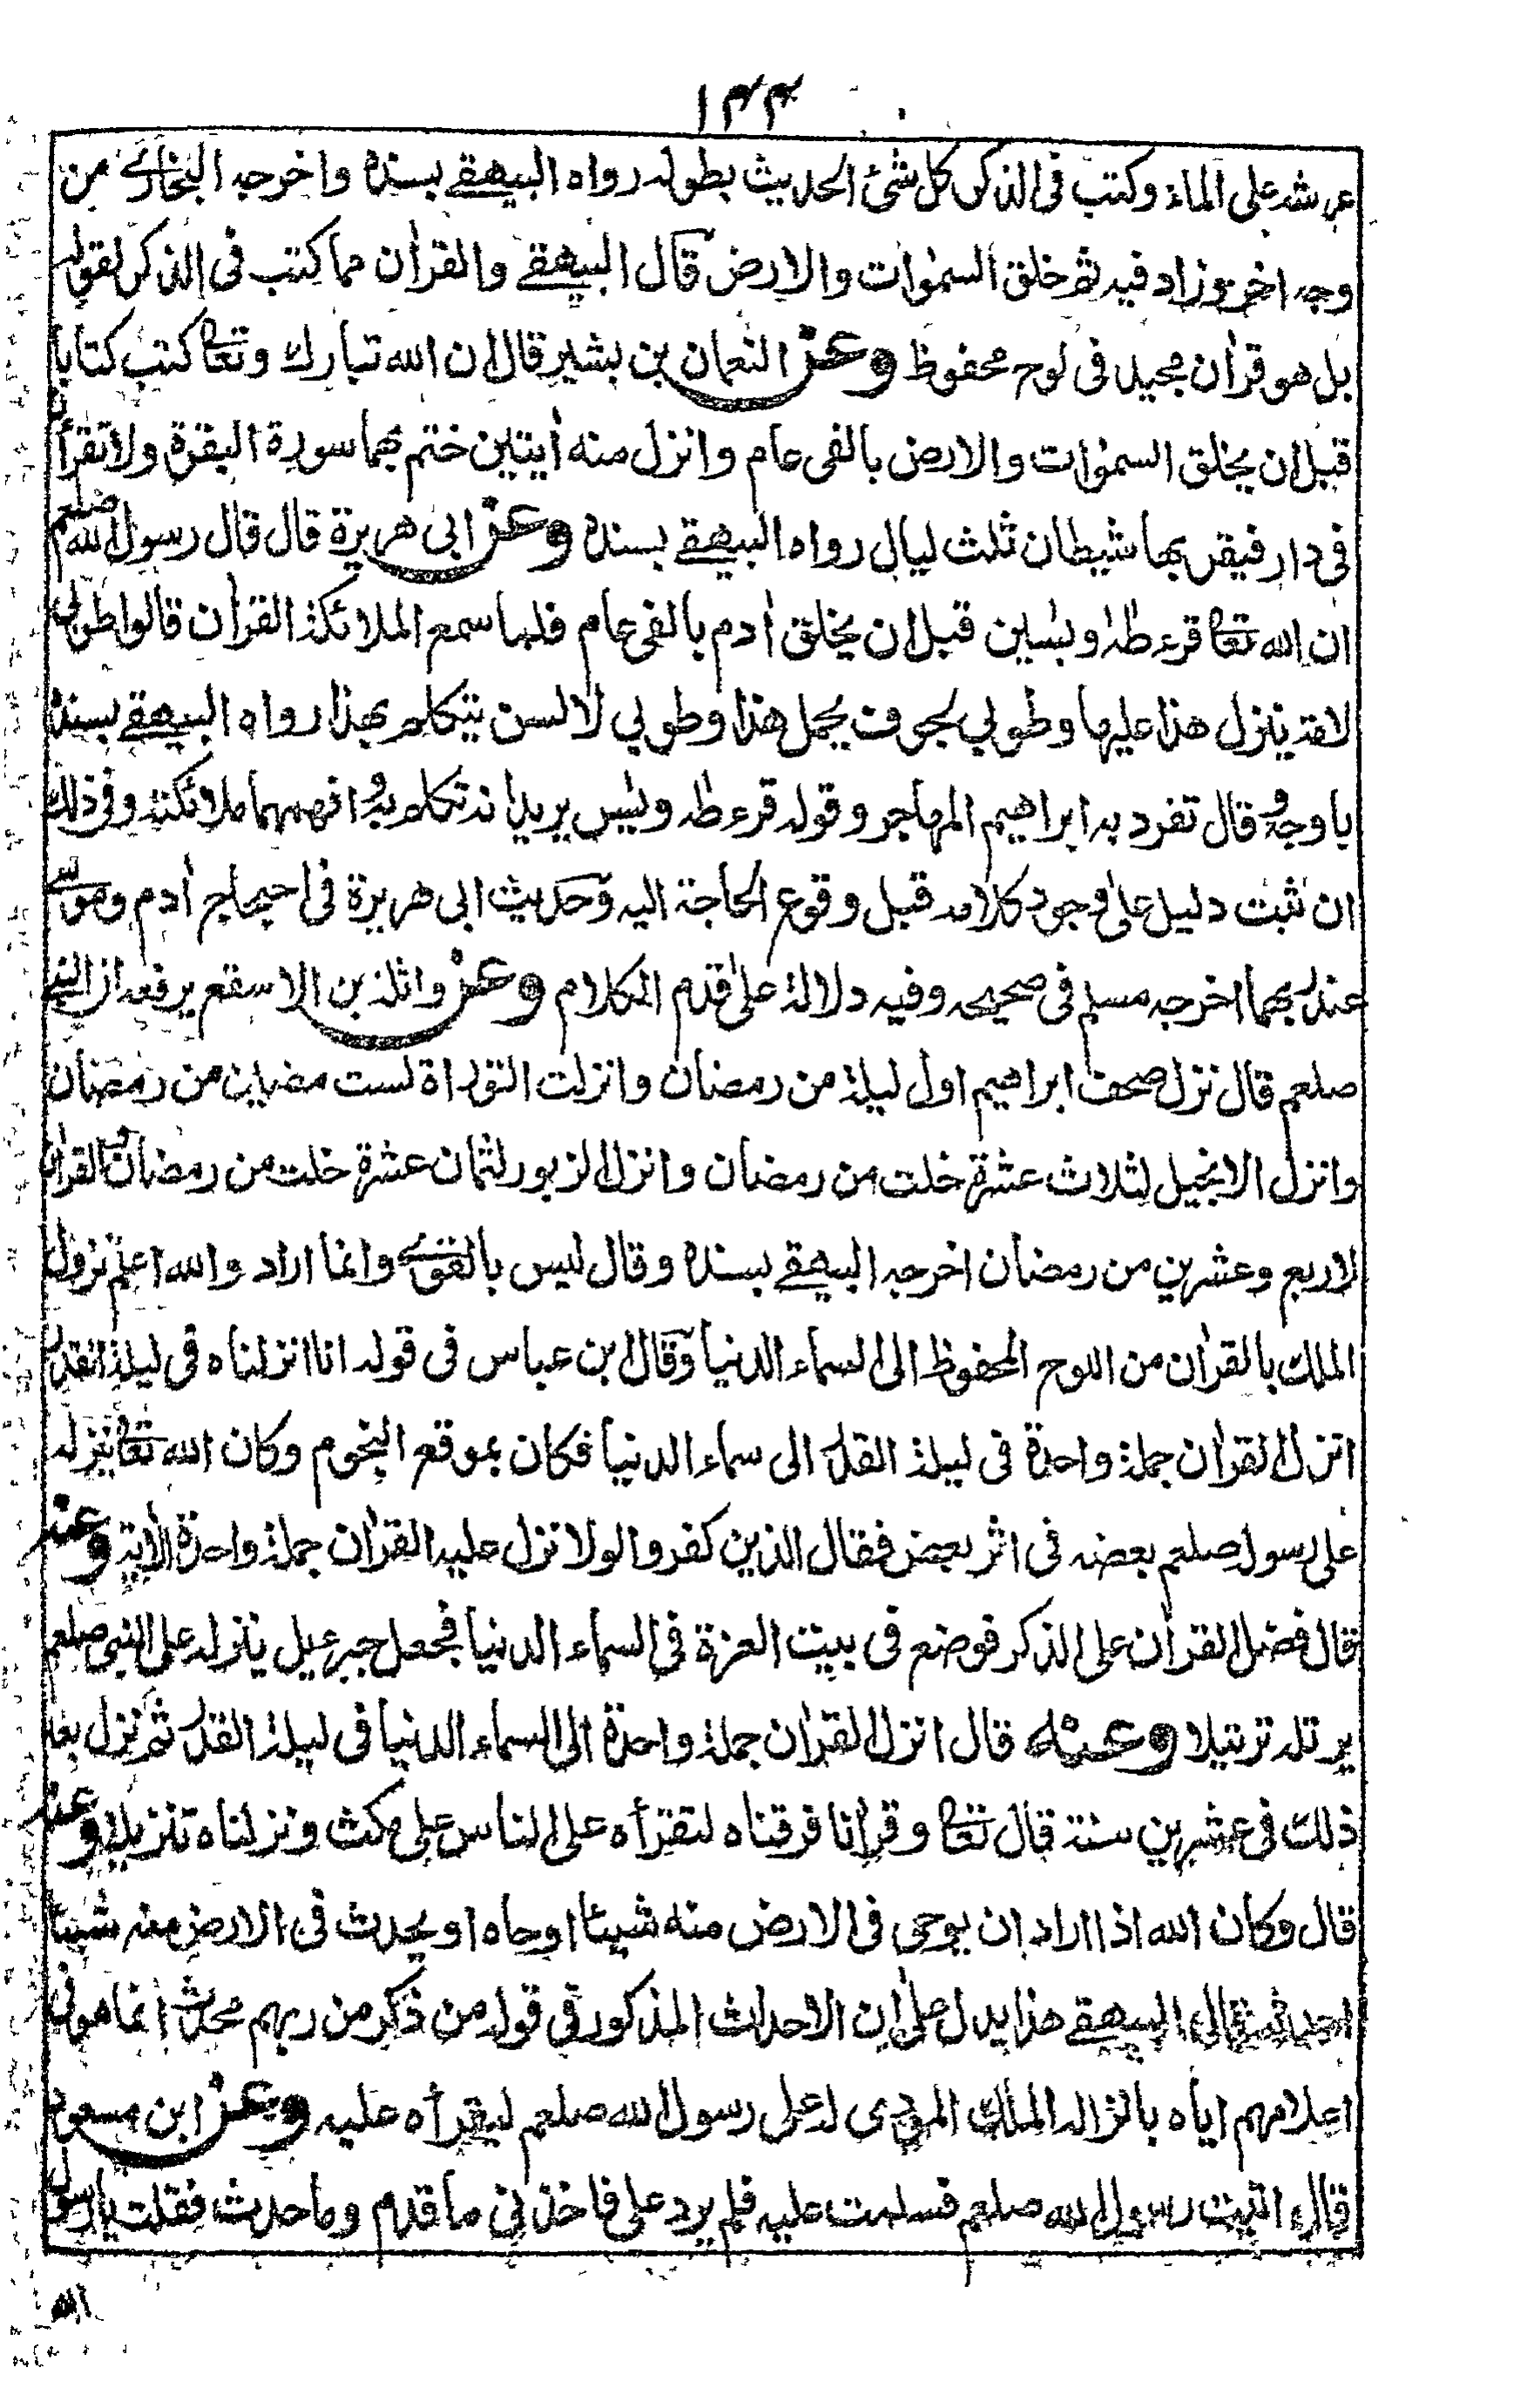 ١٤٤
عرشه على الماء وكتب فى الذكر كل شئ الحديث بطوله رواه البيهقے بسنده واخرجه البخارے من
وجه اخر وزاد فيه ثم خلق السمٰوات والارض قال البيهقے والقراٰن مما كتب فى الذكر لقوله
بل هو قراٰن مجيد فى لوح محفوظ وعن النعمان بن بشير قال ان الله تبارك وتعا كتب كتابا
قبل ان يخلق السمٰوات والارض بالفى عام وانزل منه اٰيتين ختم بهما سورة البقرة ولا تقرأن
فى دار فيقر بها شيطان ثلث ليال رواه البيهقے بسنده وعن ابى هريرة قال قال رسول الله صلعم
ان الله تعا قرء طٰه ويٰسين قبل ان يخلق اٰدم بالفى عام فلما سمع الملائكة القراٰن قالوا طوبى
لامة ينزل هذا عليها وطوبي لجوف يحمل هذا وطوبي لالسن يتكلم بهذا رواه البيهقے بسنده
باوجه وقال تفرد به ابراهيم المهاجر وقوله قرء طه ويٰس يريد انه تكلم به وافهمهما ملائكته وفى ذلك
ان ثبت دليل على وجود كلامه قبل وقوع الحاجة اليه وحديث ابى هريرة فى احتجاج اٰدم وموسے
عند ربهما اخرجه مسلم فى صحيحه وفيه دلالة على قدم الكلام وعن واثلة بن الاسقع يرفعه ان النبے
صلعم قال نزل صحف ابراهيم اول ليلة من رمضان وانزلت التوراة لست مضين من رمضان
وانزل الانجيل لثلاث عشرة خلت من رمضان وانزل الزبور لثمان عشرة خلت من رمضان والقراٰن
لاربع وعشرين من رمضان اخرجه البيهقے بسنده وقال ليس بالقوے وانما اراد والله اعلم نزول
الملك بالقراٰن من اللوح المحفوظ الى السماء الدنيا وقال ابن عباس فى قوله انا انزلناه فى ليلة القدر
انزل القراٰن جملة واحدة فى ليلة القدر الى سماء الدنيا فكان بموقع النجوم وكان الله تعا ينزله
على رسوله صلعم بعضه فى اثر بعض فقال الذين كفروا لولا نزل عليه القراٰن جملة واحدة الاٰية وعنه
قال فضل القراٰن على الذكر فوضع فى بيت العزة فى السماء الدنيا فجعل جبرءيل ينزله على النبى صلعم
يرتله ترتيلا وعنه قال انزل القراٰن جملة واحدة الى السماء الدنيا فى ليلة القدر ثم نزل بعد
ذلك فى عشرين سنة قال تعا وقراٰنا فرقناه لتقرأه على الناس على مكث ونزلناه تنزيلا وعنه
قال وكان الله اذا اراد ان يوحى فى الارض منه شيئا اوحاه او يحدث فى الارض منه شيئا
احدثه قال البيهقے هذا يدل على ان الاحداث المذكور فى قوله من ذكر من ربهم محدث انما هو فى
اعلامهم اياه بانزاله الملك المودى له على رسول الله صلعم ليقرأه عليه وعن ابن مسعود
قال اتيت رسول الله صلعم فسلمت عليه فلم يرد على فاخذنى ما قدم وما حدث فقلت يا رسول
الله